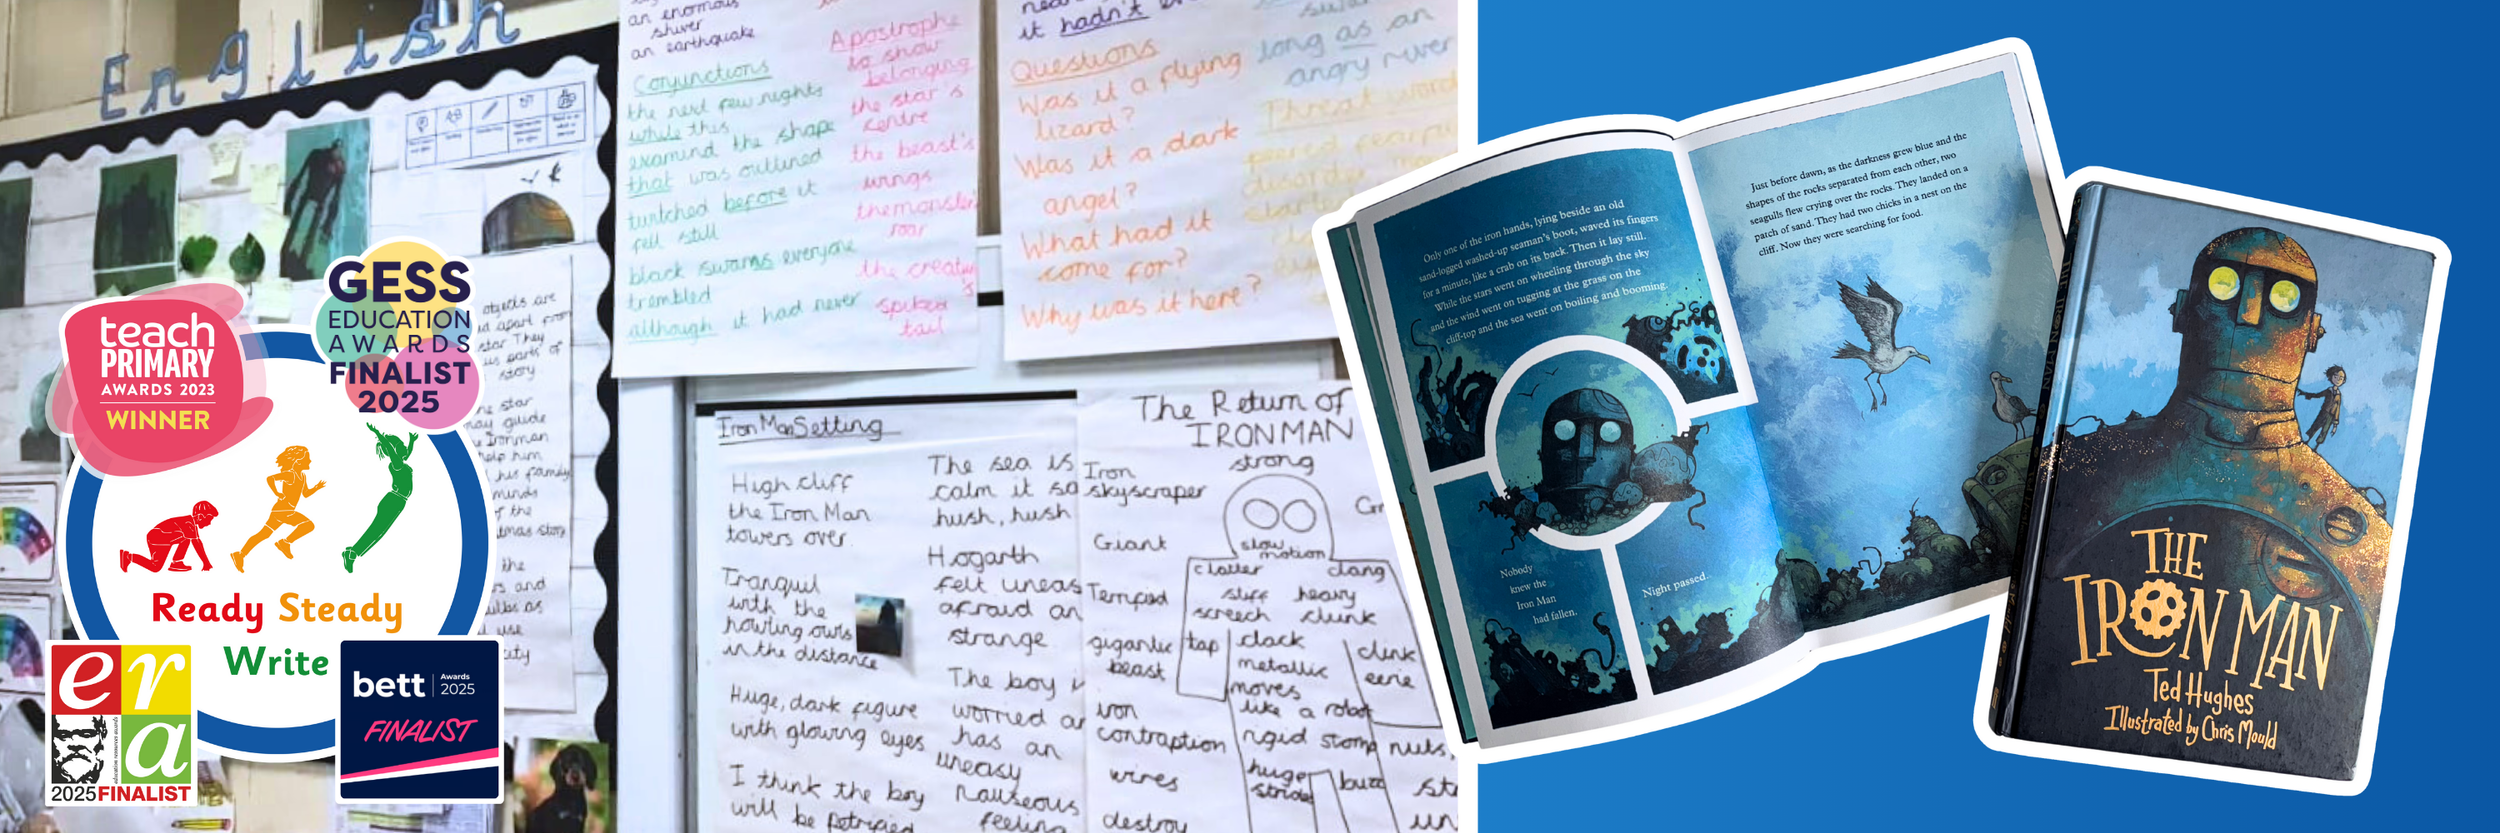 English
an enormous
shiver
an earthquake
Conjunctions
the next few nights
while this
examind the shape
that was outlined
twitched before it
fell still
black swams everyone
trembled
although it had never
Apostrophe
to show
belonging
the star's
centre
the beast's
wings
themonster's
roar
the creatur
's
spiked
tail
it hadn't
Questions
Was it a flying
lizard?
Was it a dark
angel?
What had it
come for?
Why was it here?
long as an
angry river
Threat word
peered fearful
objects are
apart from
star They
parts of
story
star
may guide
Ironman
help him
his family
minds
of the
story
the
and
as
use
city
Iron Man Setting
High cliff
the Iron Man
towers over.
Tranquil
with the
howling owls
in the distance
Huge, dark figure
with glowing eyes
I think the boy
will be petrified
The sea is
calm it so
hush, hush
Hogarth
felt uneas
afraid an
strange
The boy i
worried ar
has an
uneasy
nauseous
feeling
The Return of
IRONMAN
strong
Iron
skyscraper
Giant
Terrified
gigantic
beast
iron
contraption
wires
destroy
Gr
slow
motion
clatter clang
stiff heavy
screech clunk
tap clack
metallic
moves
like a robot
rigid stomp
huge
strides
buzz
clink
eerie
nuts,
st
un
teach
PRIMARY
AWARDS 2023
WINNER
GESS
EDUCATION
AWARDS
FINALIST
2025
Ready Steady
Write
era
2025FINALIST
bett Awards
2025
FINALIST
Only one of the iron hands, lying beside an old
sand-logged washed-up seaman's boot, waved its fingers
for a minute, like a crab on its back. Then it lay still.
While the stars went on wheeling through the sky
and the wind went on tugging at the grass on the
cliff-top and the sea went on boiling and booming.
Nobody
knew the
Iron Man
had fallen.
Night passed.
Just before dawn, as the darkness grew blue and the
shapes of the rocks separated from each other, two
seagulls flew crying over the rocks. They landed on a
patch of sand. They had two chicks in a nest on the
cliff. Now they were searching for food.
THE
IRON MAN
Ted Hughes
Illustrated by Chris Mould